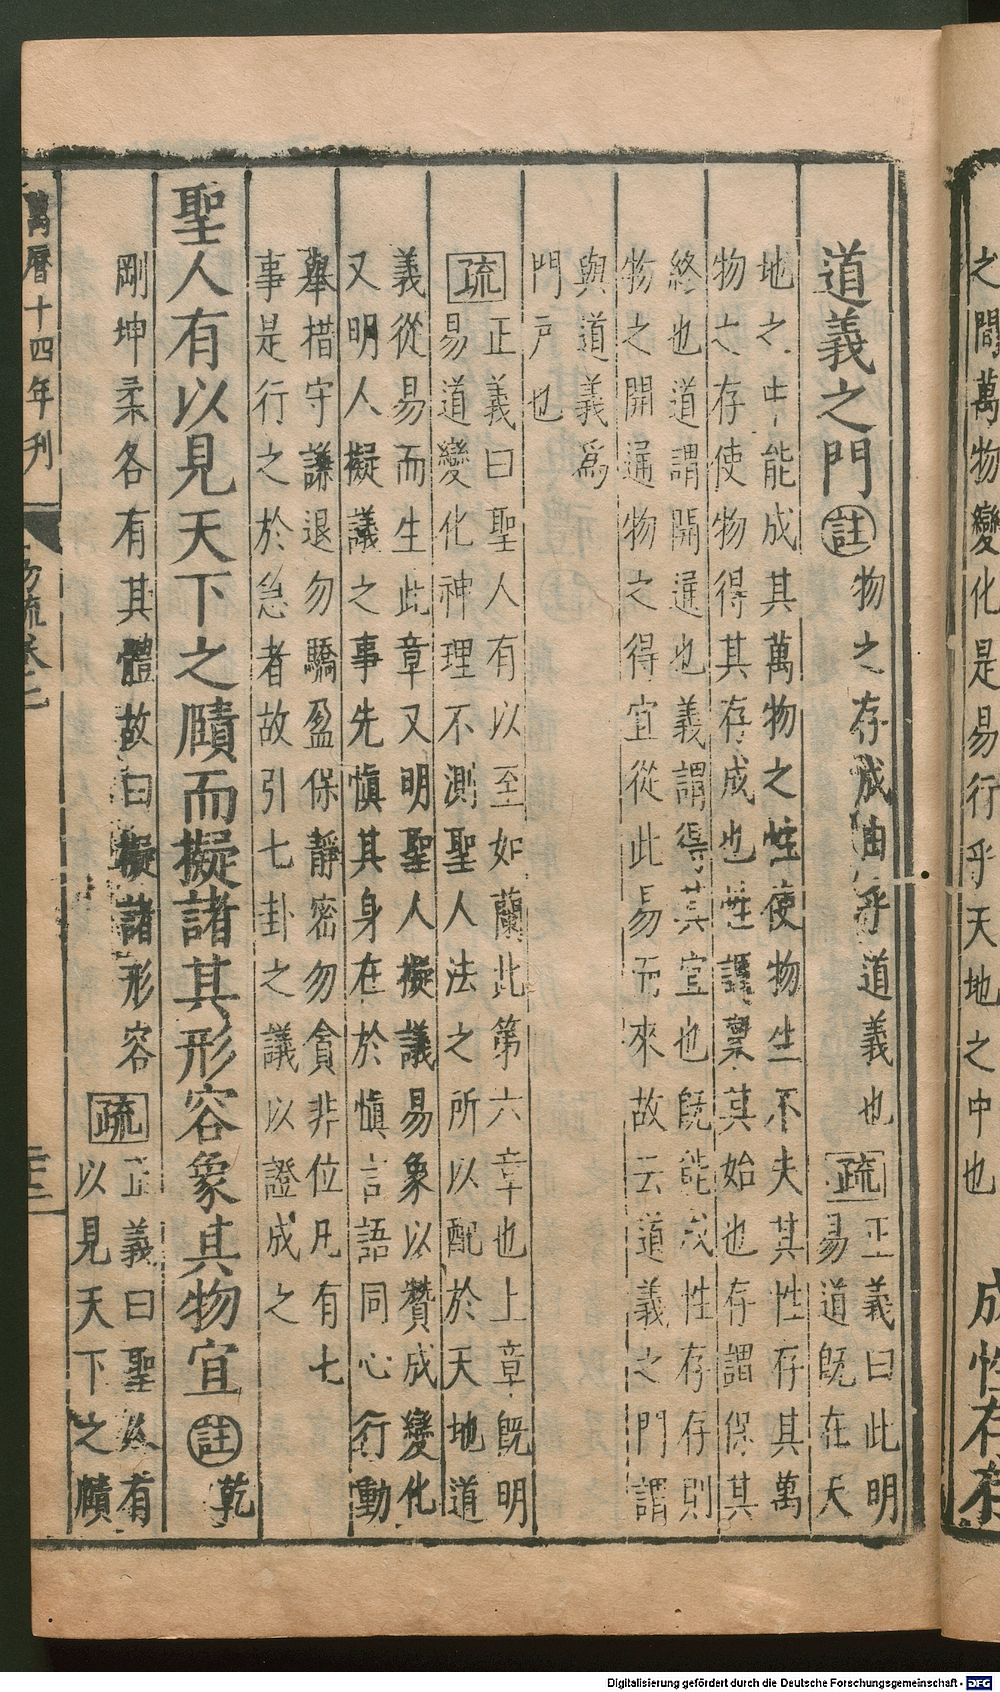 之間萬物變化是易行乎天地之中也
成性存存
道義之門註物之存成由乎道義也疏正義曰此明
易道既在天
地之中能成其萬物之性使物生不夫其性存其萬
物之存使物得其存成也性謂稟其始也存謂保其
終也道謂開通也義謂得其宜也既能成性存存則
物之開通物之得宜從此易而來故云道義之門謂
與道義爲
門戶也
疏正義曰聖人有以至如蘭此第六章也上章既明
易道變化神理不測聖人法之所以配於天地道
義從易而生此章又明聖人擬議易象以贊成變化
又明人擬議之事先慎其身在於慎言語同心行動
舉措守謙退勿驕盈保靜密勿貪非位凡有七
事是行之於急者故引七卦之議以證成之
聖人有以見天下之賾而擬諸其形容象其物宜註乾
剛坤柔各有其體故曰擬諸形容疏正義曰聖人有
以見天下之賾
萬曆十四年刊
易疏卷七
Digitalisierung gefördert durch die Deutsche Forschungsgemeinschaft - DFG